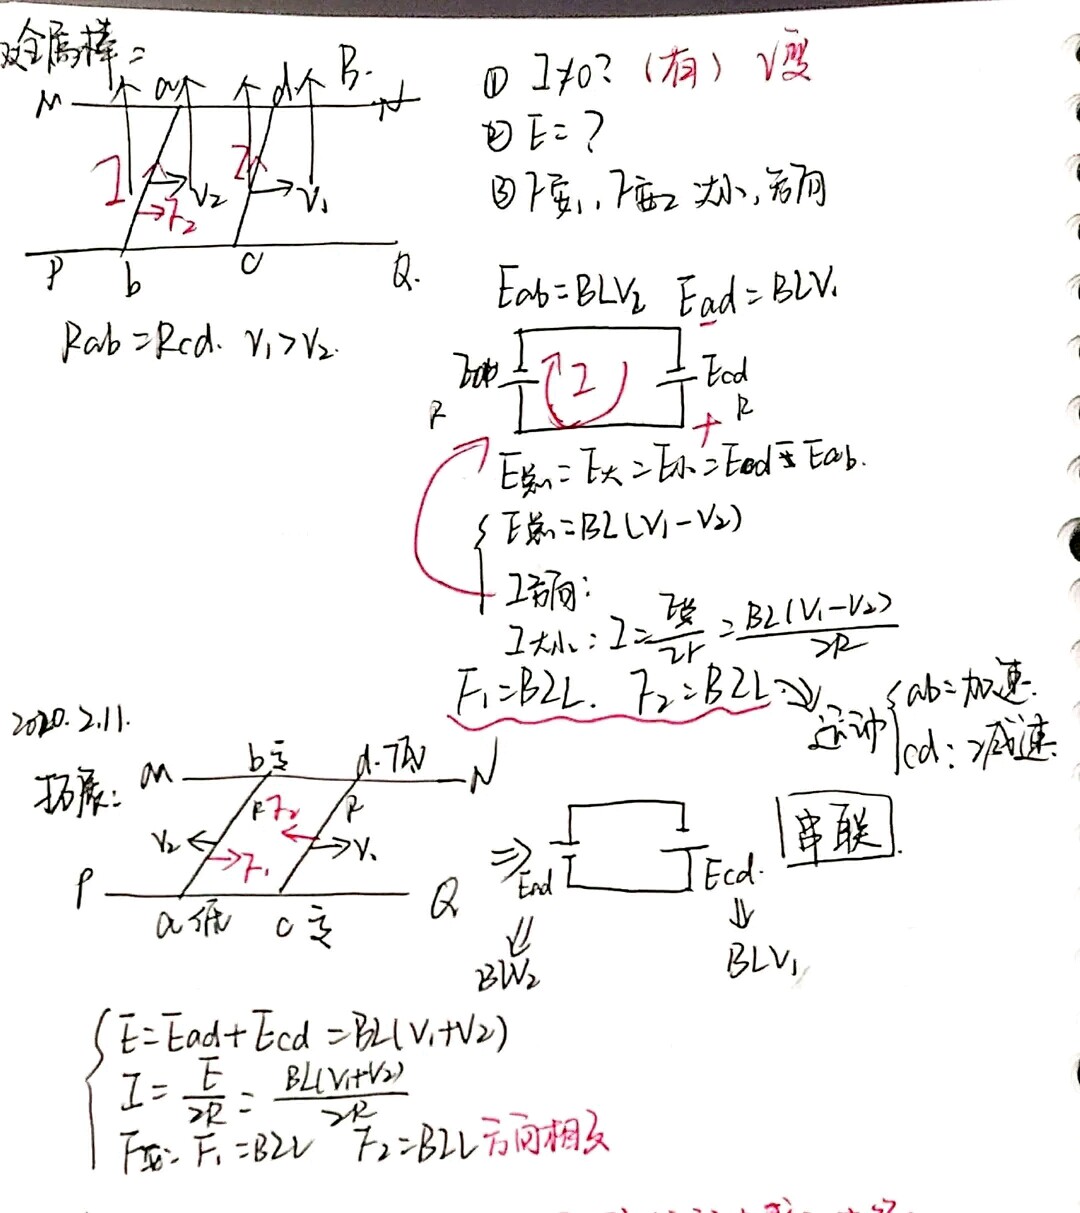 双金属棒:
M a d B. N
I I
V₂ V₁
F₂
P b C Q.
Rab=Rcd. V₁>V₂.
① I≠0? (有) V变
② E=?
③ F安₁, F安₂ 大小,方向
Eab=BLV₂ Ead=BLV₁
Eab I Ecd
R + R
E总=E大=E小=Ecd Eab.
E总=BL(V₁-V₂)
I方向:
I大小: I=E总/2r=BL(V₁-V₂)/2R
F₁=BIL. F₂=BIL ⇒ 运动 ab=加速.
cd:减速.
2020.2.11.
拓展: M b高 d.低 N
R F₂ R
V₂ F₁ V₁
P a低 c高 Q
⇒ Ead Ecd. 串联.
BLV₂ BLV₁
E=Ead+Ecd=BL(V₁+V₂)
I=E/2R=BL(V₁+V₂)/2R
F安: F₁=BIL F₂=BIL 方向相反